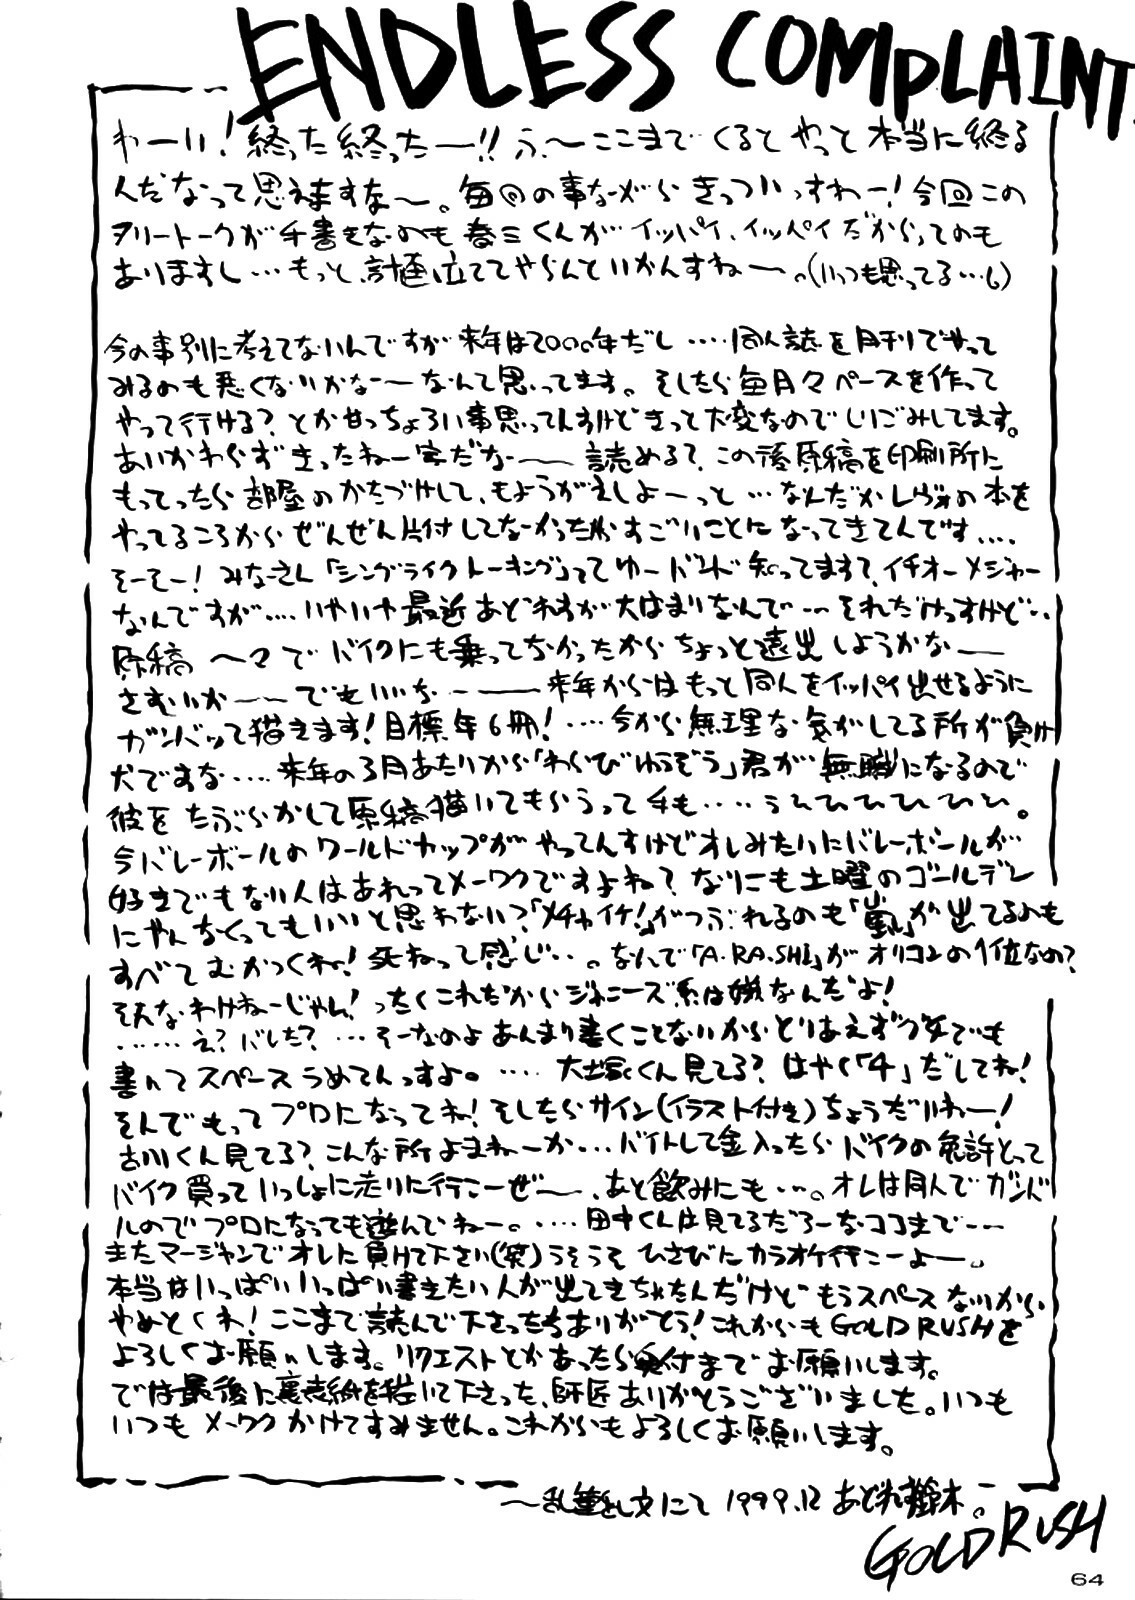 ENDLESS COMPLAINT.
わーい!終った終ったー!!ふ〜ここまでくるとやっと本当に終る
んだなって思えますな〜。毎回の事ながらきっついっすわー!今回この
フリートークが手書きなのも春三くんがイッパイ、イッパイだからってのも
ありますし…もっと計画立ててやらんといかんすねー。(いつも思ってる…)
今の事別に考えてないんですが来年は2000年だし‥‥同人誌を月刊でやって
みるのも悪くないかなーなんて思ってます。そしたら毎月々ペースを作って
やって行ける?とか甘っちょろい事思ってんすけどきっと大変なのでしりごみしてます。
あいかわらずきったねー字だなー読める?この後原稿を印刷所に
もってったら部屋のかたづけして、もようがえしよーっと…なんだかレヴォの本を
やってるころからぜんぜん片付してなかったわすごいことになってきてんです‥‥
そーそー!みなーさん「シングライクトーキング」ってゆーバンド知ってます?イチオーメジャー
なんですが‥‥いやいや最近あどれすが大はまりなんで…それだけっすけど‥
原稿〜々でバイクにも乗ってなかったからちょっと遠出しようかなー
さむいかー〜でもいいなー来年からはもっと同人をイッパイ出せるように
ガンバッて描きます!目標年6冊!‥‥今から無理な気がしてる所が負け
犬ですな‥‥来年の3月あたりから「わらびゆうぞう」君が無職になるので
彼をたぶらかして原稿描いてもらうって手も‥‥うひひひひひひ。
今バレーボールのワールドカップがやってんすけどオレみたいにバレーボールが
好きでもない人はあれってメーワクですよね?なりにも土曜のゴールデン
にやんなくってもいいと思わない?「メチャイケ!」がつぶれるのも「嵐」が出てるのも
すべてむかつくね!死ねって感じ…。なんで「A・RA・SHI」がオリコンの1位なの?
そんなわけねーじゃん!ったくこれだからジャニーズ系は嫌なんだよ!
……え?バレた?…そーなのよあんまり書くことないからとりあえずグチでも
書いてスペースうめてんっすよ。‥‥大塚くん見てる?はやく「4」だしてね!
そんでもってプロになってね!そしたらサイン(イラスト付き)ちょうだいねー!
古川くん見てる?こんな所よまねーか…バイトして金入ったらバイクの免許とって
バイク買っていっしょに走りに行こーぜ〜、あと飲みにも…。オレは同人でガンバ
ルのでプロになっても遊んでねー。‥‥田中くんは見てるだろーなココまで…
またマージャンでオレに負けて下さい(笑)うそうそひさびにカラオケ行こーよー。
本当はいっぱいいっぱい書きたい人が出てきちゃたんだけどもうスペースないから
やめとくわ!ここまで読んで下さったちありがとう!これからもGOLD RUSHを
よろしくお願いします。リクエストとかあったら奥付までお願いします。
では最後に裏表紙を描いて下さった、師匠ありがとうございました。いつも
いつもメーワクかけてすみません。これからもよろしくお願いします。
〜乱筆乱文にて 1999.12 あどれす鈴木。
GOLD RUSH
64